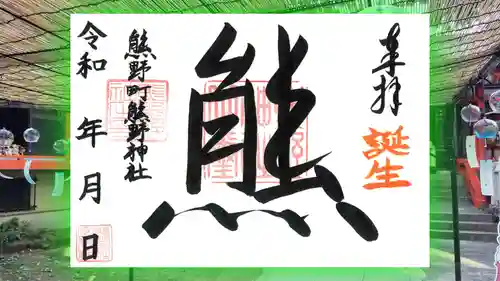 奉拝
誕生
熊
熊野町熊野神社
令和 年 月 日